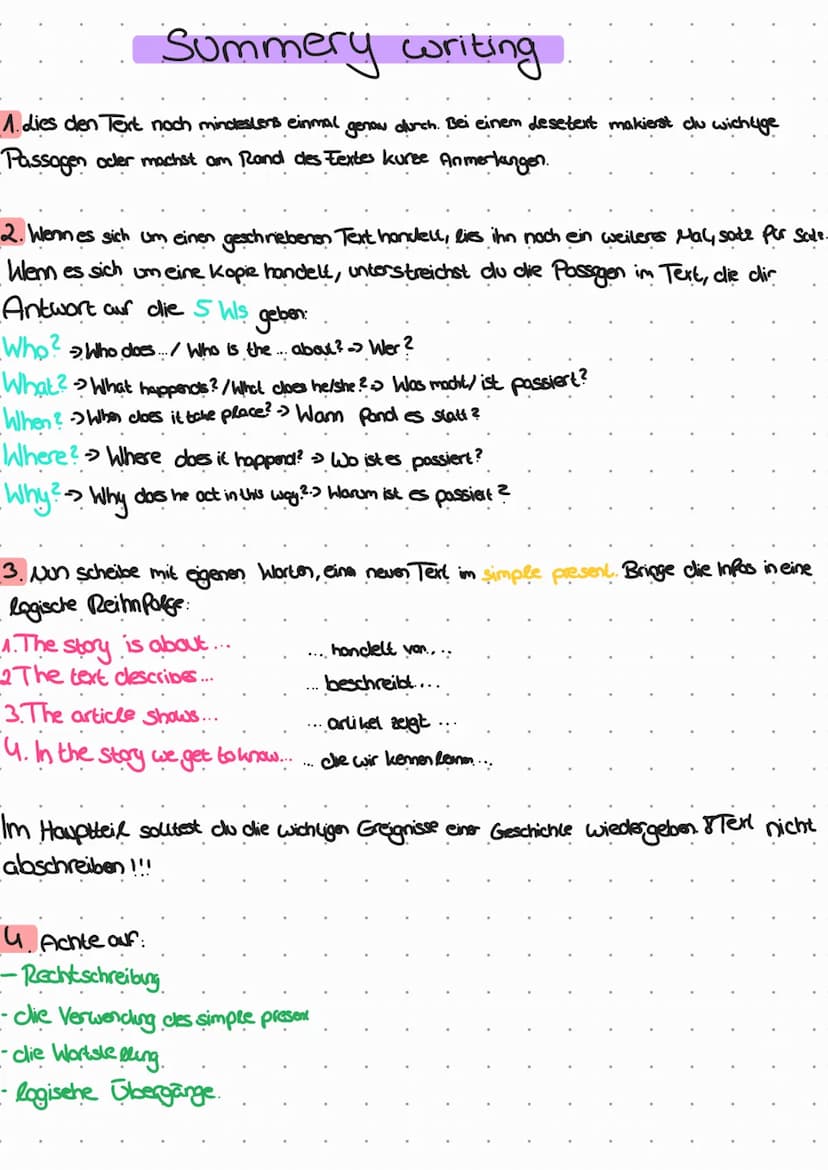 Summery writing
1. lies den Text noch mindestens einmal genau durch. Bei einem Lesetext makierst du wichtige
Passagen oder machst am Rand des Textes kurze Anmerkungen.
2. Wenn es sich um einen geschriebenen Text handelt, lies ihn noch ein weiteres Mal, satz für Satz.
Wenn es sich um eine Kopie handelt, unterstreichst du die Passagen im Text, die dir
Antwort auf die 5 Ws geben:
Who? → Who does.../ Who is the ... about? → Wer?
What? → What happends? / What does he/she? → Was macht/ ist passiert?
When? → When does it take place? → Wann fand es statt?
Where? → Where does it happend? → Wo ist es passiert?
Why? → Why does he act in this way? → Warum ist es passiert?
3. Nun scheibe mit eigenen Worten, eine neuen Text im simple present. Bringe die Infos in eine
logische Reihnfolge:
1. The story is about ... ... handelt von...
2 The text describes ... ... beschreibt....
3. The article shows... ... artikel zeigt ...
4. In the story we get to know... ... die wir kennen lernen...
Im Hauptteil solltest du die wichtigen Ereignisse einer Geschichte wiedergeben. Text nicht
abschreiben!!!
4. Achte auf:
- Rechtschreibung
- die Verwendung des simple present
- die Wortstellung.
- logische Übergänge.